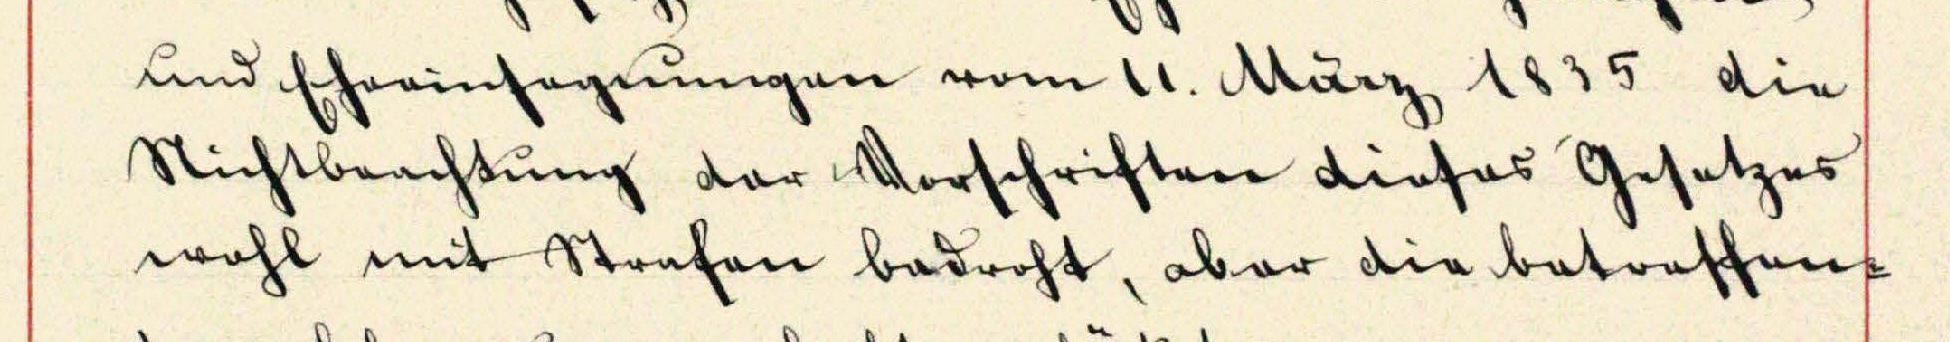 und Eheeinsegnungen vom 11. März 1835 die
Nichtbeachtung der Vorschriften dieses Gesetzes
wohl mit Strafen bedroht, aber die betreffen=